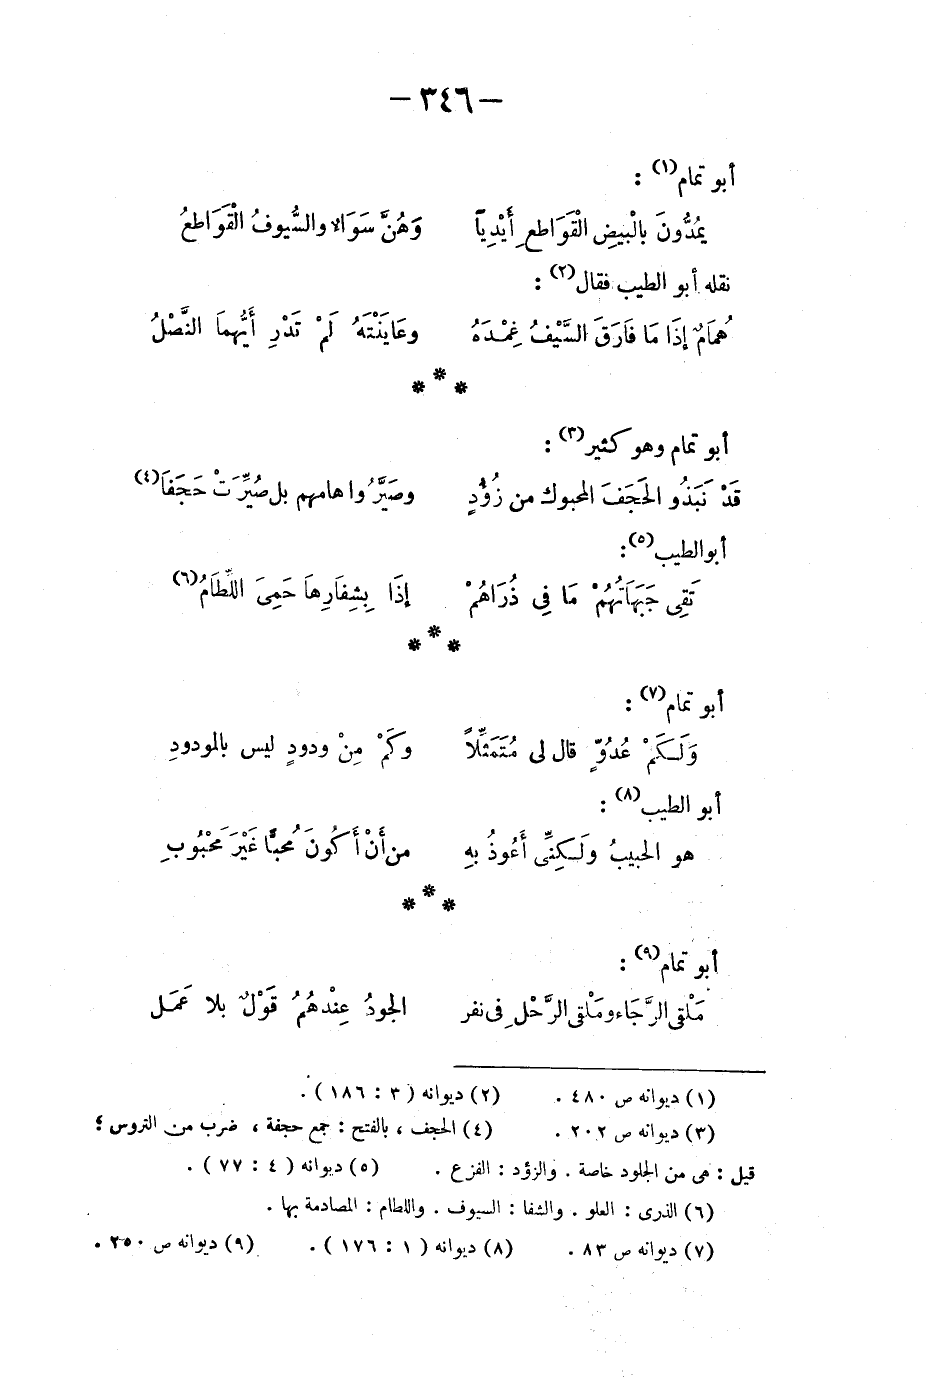 — ٣٤٦ —
أبو تمام(١) :
يَمُدُّونَ بالْبِيضِ الْقَوَاطِعِ أَيْدِياً وَهُنَّ سَوَالا والسُّيوفُ الْقَوَاطعُ
نقله أبو الطيب فقال(٢) :
هُمَامٌ إذَا مَا فَارَقَ السَّيْفُ غِمْدَهُ وعَايَنْتَهُ لَمْ تَدْرِ أَيُّهمَا النَّصْلُ
* * *
أبو تمام وهو كثير(٣) :
قَدْ نَبَذُو الحَجَفَ المحبوك من زُؤُدٍ وصَيَّرُوا هامهم بل صُيِّرَتْ حَجَفَا(٤)
أبو الطيب(٥) :
تَقِى جَبَهَاتُهُمْ مَا فِى ذُرَاهُمْ إذَا بِشِفَارِهاَ حَمِىَ اللِّطَامُ(٦)
* * *
أبو تمام(٧) :
وَلَكَمْ عُدُوٍّ قال لى مُتَمَثِّلاً وكَمْ مِنْ ودودٍ ليس بالمودودِ
أبو الطيب(٨) :
هو الحبيبُ ولَكِنِّى أَعُوذُ بِهِ من أَنْ أَكُونَ مُحبًّا غَيْرَ مَحْبُوبِ
* * *
أبو تمام(٩) :
مَلْقى الرَّجَاء ومَلْقى الرَّحْلِ فى نفر الجودُ عِنْدهُمُ قَوْلٌ بلا عَمَل
(١) ديوانه ص ٤٨٠ . (٢) ديوانه ( ٣ : ١٨٦ ) .
(٣) ديوانه ص ٢٠٢ . (٤) الحجف ، بالفتح : جمع حجفة ، ضرب من التروس ؛
قيل : هى من الجلود خاصة . والزؤد : الفزع . (٥) ديوانه ( ٤ : ٧٧ ) .
(٦) الذرى : العلو . والشفا : السيوف . واللطام : المصادمة بها .
(٧) ديوانه ص ٨٣ . (٨) ديوانه ( ١ : ١٧٦ ) . (٩) ديوانه ص ٢٥٠ .